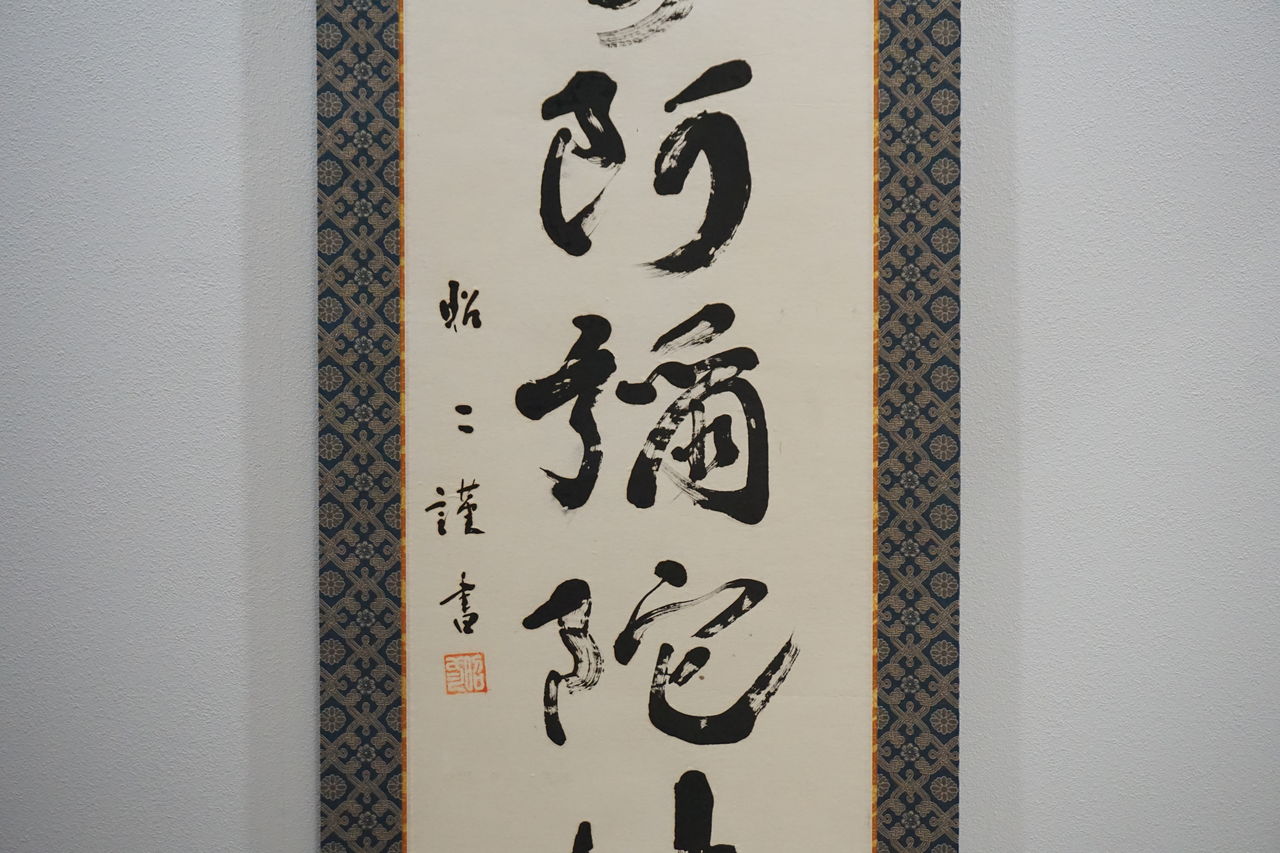 阿彌陀
昭二謹書